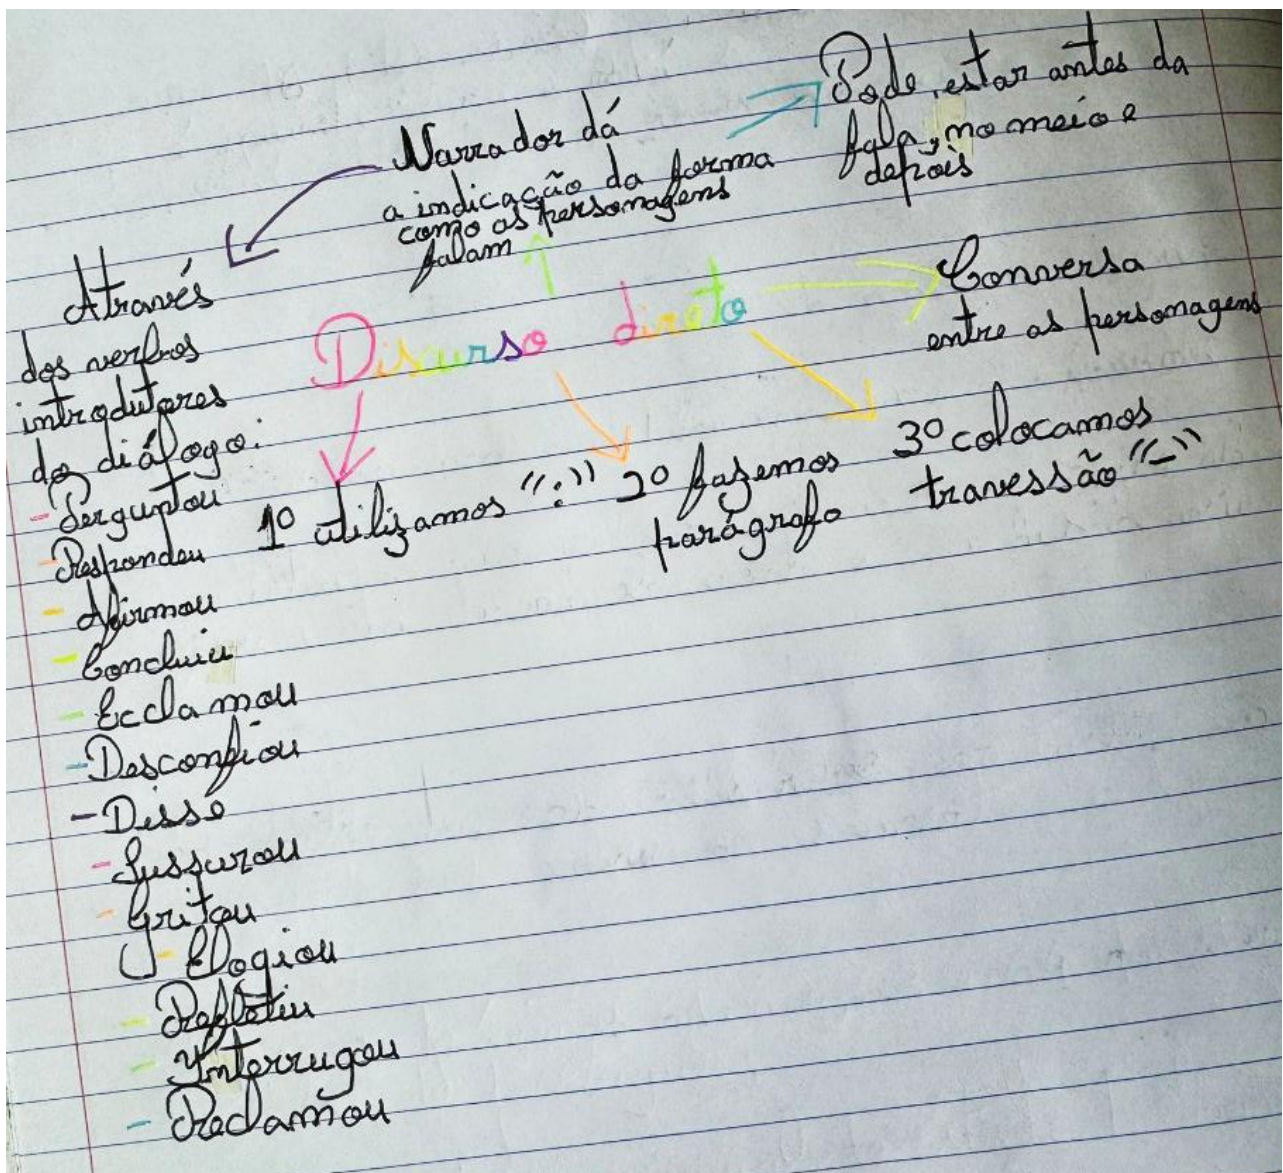 Narrador dá
a indicação da forma
como as personagens
falam
Pode estar antes da
fala, no meio e
depois
Através
dos verbos
introdutores
do diálogo:
- Perguntou
- Respondeu
- Afirmou
- Concluiu
- Ecclamou
- Desconfiou
- Disse
- Sussurou
- Gritou
- Elogiou
- Refletiu
- Interrugou
- Reclamou
Discurso direto
Conversa
entre as personagens
1º utilizamos ":"
2º fazemos
parágrafo
3º colocamos
travessão "-"